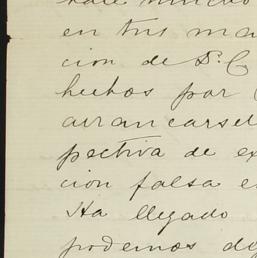 en tus ma
cion de D. C
hechos por
arrancarsel
pectiva de ex
cion falsa e
Ha llegado
podemos de